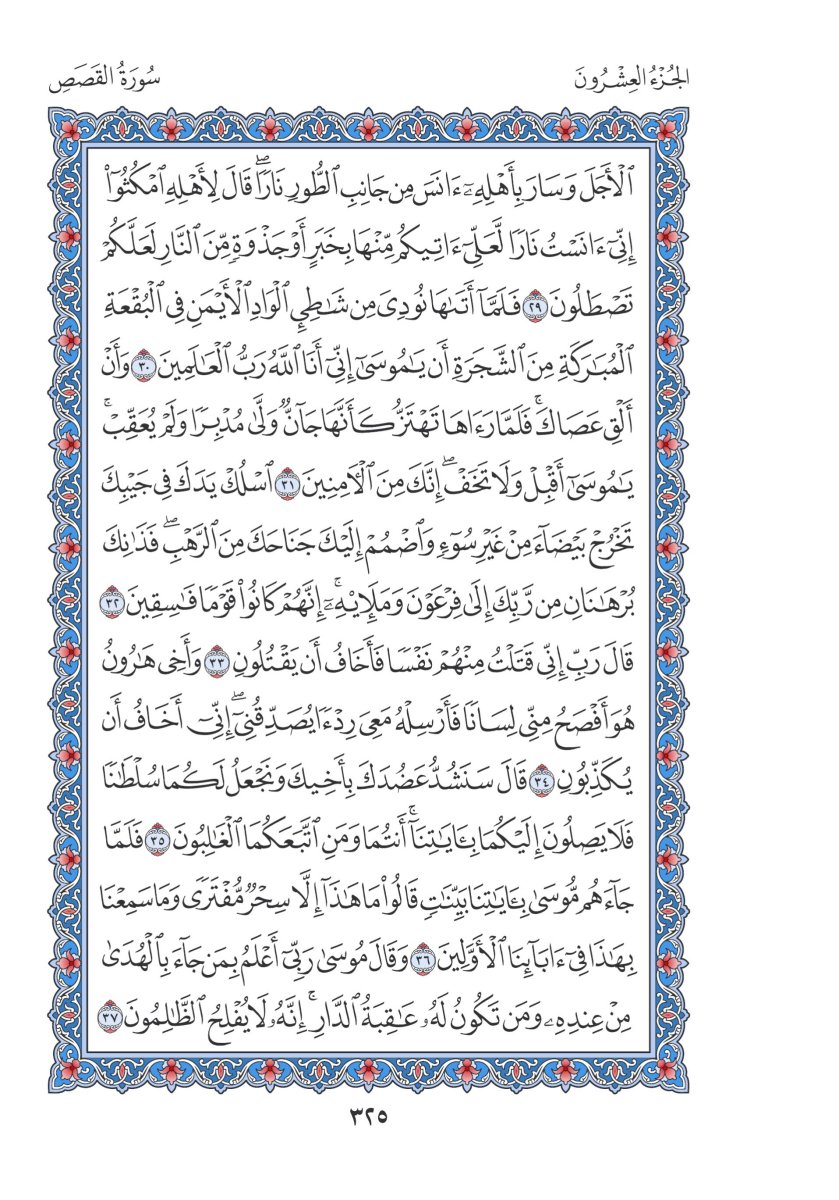 الجُزْءُ العِشْرُونَ
سُورَةُ القَصَصِ
ٱلْأَجَلَ وَسَارَ بِأَهْلِهِۦٓ ءَانَسَ مِن جَانِبِ ٱلطُّورِ نَارًاۖ قَالَ لِأَهْلِهِ ٱمْكُثُوٓا۟
إِنِّىٓ ءَانَسْتُ نَارًا لَّعَلِّىٓ ءَاتِيكُم مِّنْهَا بِخَبَرٍ أَوْ جَذْوَةٍ مِّنَ ٱلنَّارِ لَعَلَّكُمْ
تَصْطَلُونَ ٢٩ فَلَمَّآ أَتَىٰهَا نُودِىَ مِن شَٰطِئِ ٱلْوَادِ ٱلْأَيْمَنِ فِى ٱلْبُقْعَةِ
ٱلْمُبَٰرَكَةِ مِنَ ٱلشَّجَرَةِ أَن يَٰمُوسَىٰٓ إِنِّىٓ أَنَا ٱللَّهُ رَبُّ ٱلْعَٰلَمِينَ ٣٠ وَأَنْ
أَلْقِ عَصَاكَۚ فَلَمَّا رَءَاهَا تَهْتَزُّ كَأَنَّهَا جَآنٌّ وَلَّىٰ مُدْبِرًا وَلَمْ يُعَقِّبْۚ
يَٰمُوسَىٰٓ أَقْبِلْ وَلَا تَخَفْۖ إِنَّكَ مِنَ ٱلْءَامِنِينَ ٣١ ٱسْلُكْ يَدَكَ فِى جَيْبِكَ
تَخْرُجْ بَيْضَآءَ مِنْ غَيْرِ سُوٓءٍ وَٱضْمُمْ إِلَيْكَ جَنَاحَكَ مِنَ ٱلرَّهْبِۖ فَذَٰنِكَ
بُرْهَٰنَانِ مِن رَّبِّكَ إِلَىٰ فِرْعَوْنَ وَمَلَإِي۟هِۦٓۚ إِنَّهُمْ كَانُوا۟ قَوْمًا فَٰسِقِينَ ٣٢
قَالَ رَبِّ إِنِّى قَتَلْتُ مِنْهُمْ نَفْسًا فَأَخَافُ أَن يَقْتُلُونِ ٣٣ وَأَخِى هَٰرُونُ
هُوَ أَفْصَحُ مِنِّى لِسَانًا فَأَرْسِلْهُ مَعِىَ رِدْءًا يُصَدِّقُنِىٓۖ إِنِّىٓ أَخَافُ أَن
يُكَذِّبُونِ ٣٤ قَالَ سَنَشُدُّ عَضُدَكَ بِأَخِيكَ وَنَجْعَلُ لَكُمَا سُلْطَٰنًا
فَلَا يَصِلُونَ إِلَيْكُمَا بِـَٔايَٰتِنَآۚ أَنتُمَا وَمَنِ ٱتَّبَعَكُمَا ٱلْغَٰلِبُونَ ٣٥ فَلَمَّا
جَآءَهُم مُّوسَىٰ بِـَٔايَٰتِنَا بَيِّنَٰتٍ قَالُوا۟ مَا هَٰذَآ إِلَّا سِحْرٌ مُّفْتَرًى وَمَا سَمِعْنَا
بِهَٰذَا فِىٓ ءَابَآئِنَا ٱلْأَوَّلِينَ ٣٦ وَقَالَ مُوسَىٰ رَبِّىٓ أَعْلَمُ بِمَن جَآءَ بِٱلْهُدَىٰ
مِنْ عِندِهِۦ وَمَن تَكُونُ لَهُۥ عَٰقِبَةُ ٱلدَّارِۚ إِنَّهُۥ لَا يُفْلِحُ ٱلظَّٰلِمُونَ ٣٧
٣٢٥